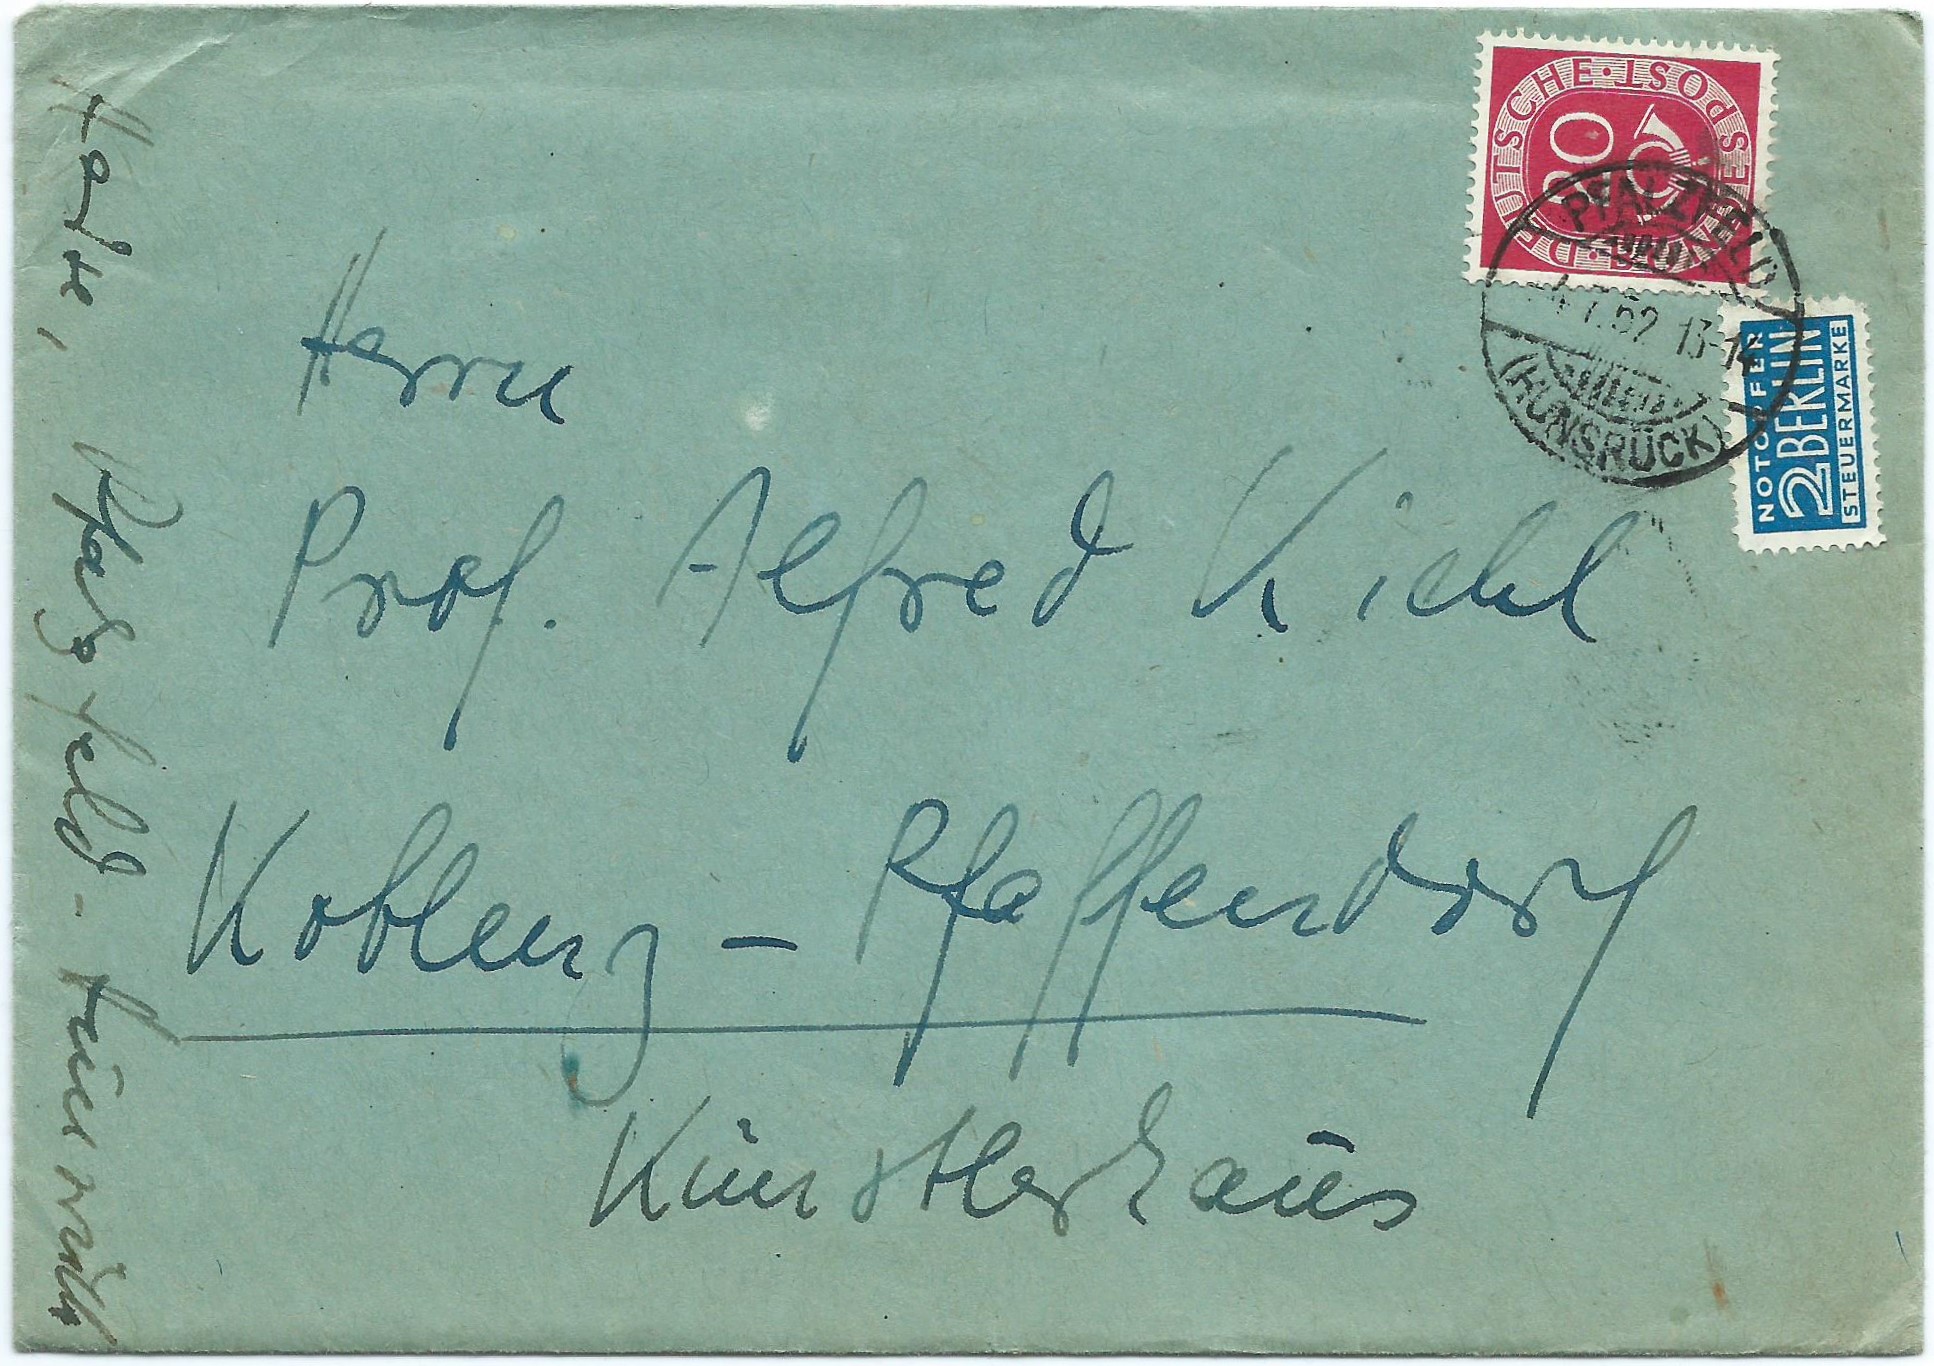 DEUTSCHE·BUNDESPOST
80
PFALZFELD
4.7.52 13-14
(HUNSRÜCK)
NOTOPFER
2 BERLIN
STEUERMARKE
Herrn
Prof. Alfred Kiehl
Koblenz - Pfaffendorf
Künstlerhaus
Pfalzfeld - Hunsrück